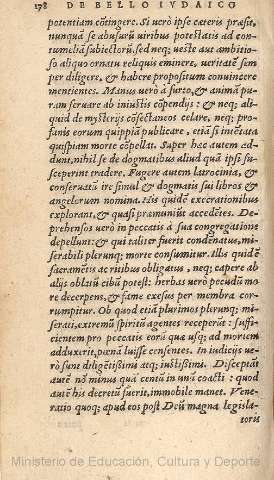 178 DE BELLO IVDAICO
potentiam cõtingere. Si uerò ipse cæteris præsit,
nunquã se abusurũ uiribus potestatis ad con-
tumeliã subiectorũ, sed neq; ueste aut ambitio-
so aliquo ornatu reliquis eminere, ueritatẽ sem
per diligere, & habere propositum conuincere
mentientes. Manus uerò à furto, & animã pu-
ram seruare ab iniustis cõpendijs: & neq; ali-
quid de mysterijs cõsectaneos celare, neq; pro-
fanis eorum quippiã publicare, etiã si intẽtata
quispiam morte cõpellat. Super hæc autem ad
dunt, nihil se de dogmatibus aliud quã ipsi su-
sceperint tradere. Fugere autem latrocinia, &
conseruatũ ire simul & dogmatis sui libros &
angelorum nomina. His quidẽ execrationibus
explorant, & quasi præmuniũt accedẽtes. De-
prehensos uerò in peccatis à sua congregatione
depellunt: & qui taliter fuerit condenatus, mi-
serabili plerunq; morte consumitur. Illis quidẽ
sacramẽtis ac ritibus obligatus, neq; capere ab
alijs oblatũ cibũ potest: herbas uerò pecudũ mo
re decerpens, & fame exesus per membra cor-
rumpitur. Ob quod etiã plurimos plerunq; mi-
serati, extremũ spiritũ agentes receperũt: suffi-
cientem pro peccatis eorũ qua usq; ad mortem
adduxerit, pœnã luisse censentes. In iudicijs ue-
rò sunt diligẽtissimi atq; iustissimi. Disceptãt
autẽ nõ minus quã centũ in unũ coacti: quod
autẽ his decretũ fuerit, immobile manet. Vene-
ratio quoq; apud eos post Deũ magna legisla-
toris
Ministerio de Educación, Cultura y Deporte